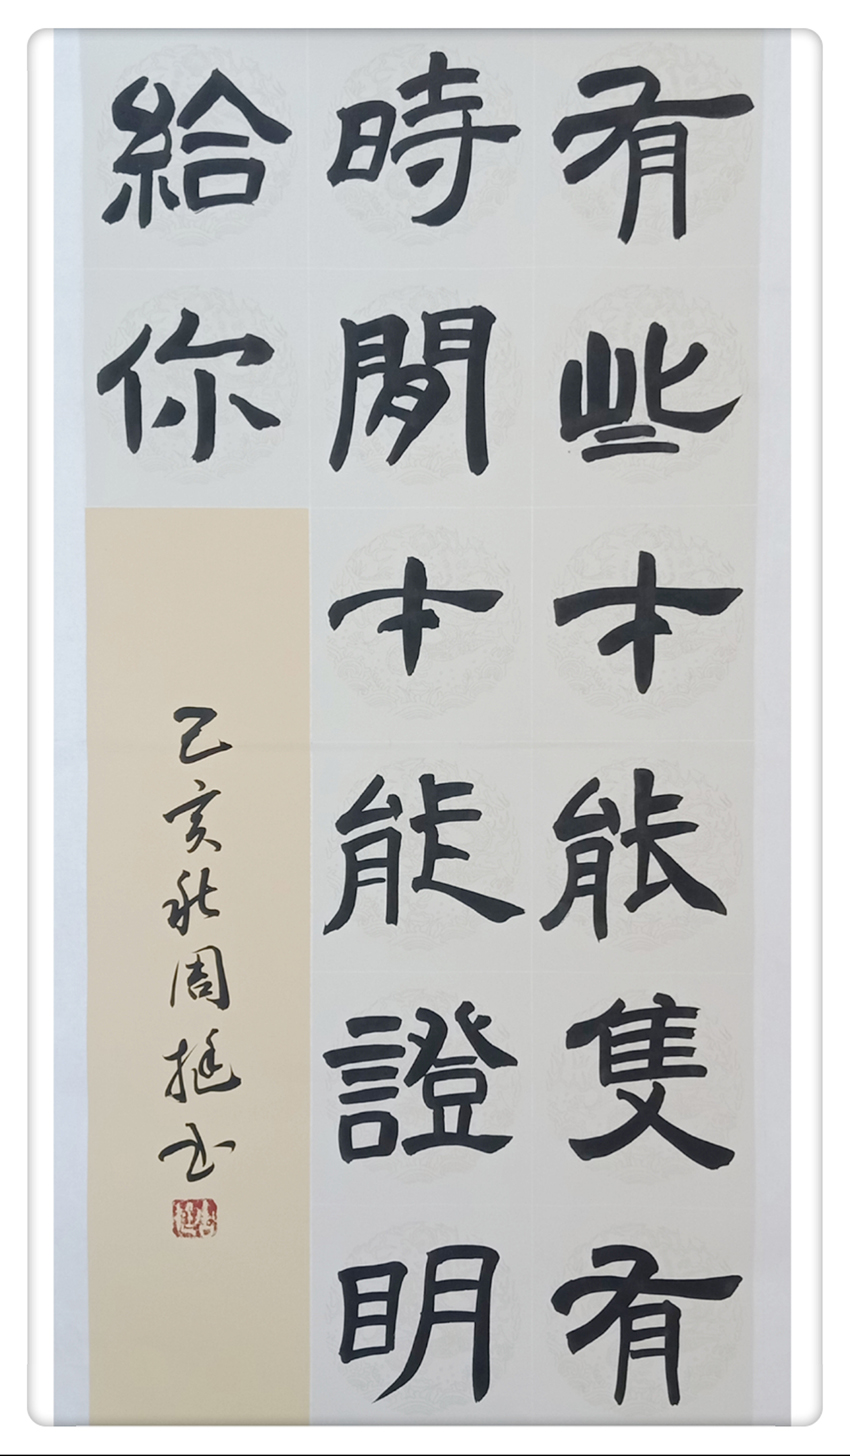 有些才能隻有
時閒才能證明
給你
己亥秋周挺书